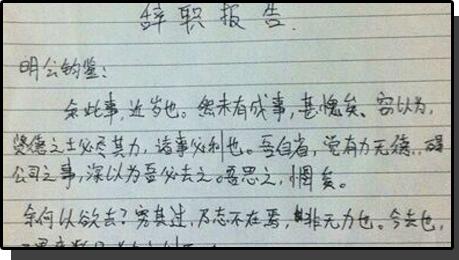 辞职报告
明公钧鉴：
余此事，近岁也。然未有成事，甚愧矣。窃以为，
贤德之士必尽其力，诸事必利也。吾自省，空有力无德，碍
公司之事，深以为吾必去之。吾思之，惘矣。
余何以欲去？究其过，乃志不在焉，非无力也。今去也，